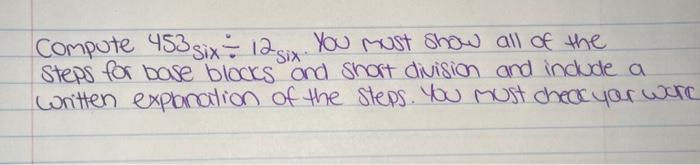 Compute 453six ÷ 12six. You must show all of the
Steps for base blocks and short division and include a
written explanation of the steps. You must check your work